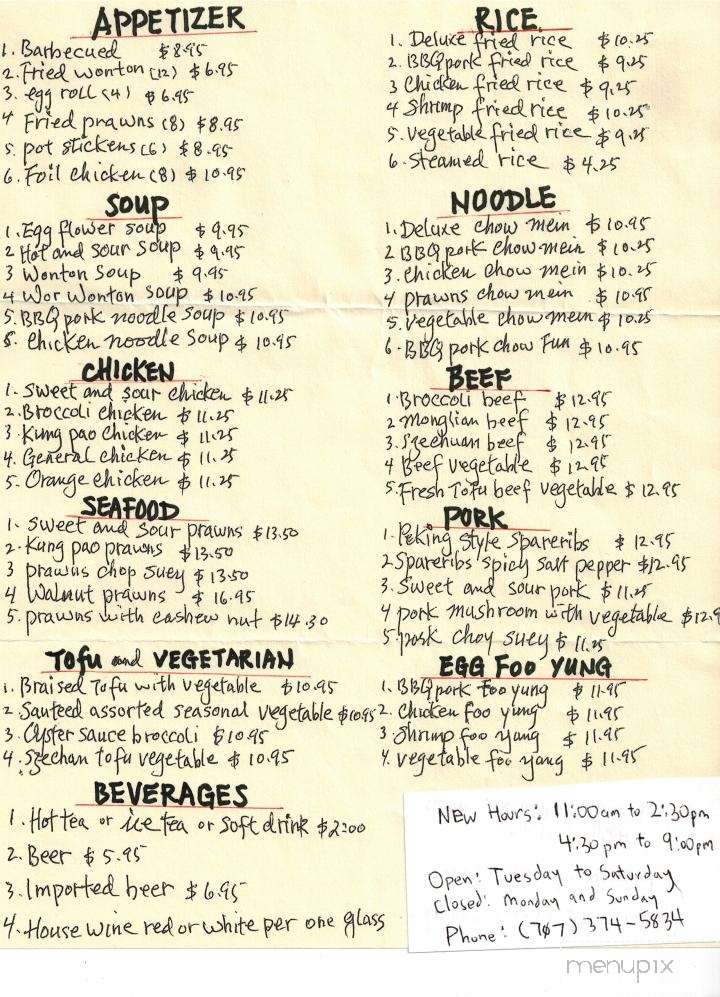 APPETIZER
1. Barbecued $8.95
2. Fried wonton (12) $6.95
3. egg roll (4) $6.95
4 Fried prawns (8) $8.95
5. pot stickens (6) $8.95
6. Foil chicken (8) $10.95
SOUP
1. Egg flower soup $9.95
2 Hot and sour soup $9.95
3 Wonton Soup $9.95
4 Wor Wonton Soup $10.95
5. BBQ pork noodle soup $10.95
6. chicken noodle Soup $10.95
CHICKEN
1. Sweet and sour chicken $11.25
2. Broccoli chicken $11.25
3. Kung pao chicken $11.25
4. General chicken $11.25
5. Orange chicken $11.25
SEAFOOD
1. sweet and sour prawns $13.50
2. Kung pao prawns $13.50
3 prawns chop suey $13.50
4 Walnut prawns $16.95
5. prawns with cashew nut $14.30
TOFU and VEGETARIAN
1. Braised Tofu with vegetable $10.95
2 Sauteed assorted seasonal vegetable $10.95
3. Oyster sauce broccoli $10.95
4. Szechan tofu vegetable $10.95
BEVERAGES
1. Hot tea or ice tea or soft drink $2.00
2. Beer $5.95
3. Imported beer $6.95
4. House wine red or white per one glass
RICE
1. Deluxe fried rice $10.25
2. BBQ pork fried rice $9.25
3 Chicken fried rice $9.25
4 Shrimp fried rice $10.25
5. vegetable fried rice $9.25
6. Steamed rice $4.25
NOODLE
1. Deluxe chow mein $10.95
2 BBQ pork chow mein $10.25
3. chicken chow mein $10.25
4 prawns chow mein $10.95
5. vegetable chow mein $10.25
6. BBQ pork chow Fun $10.95
BEEF
1. Broccoli beef $12.95
2 Monglian beef $12.95
3. Szechuan beef $12.95
4 Beef vegetable $12.95
5. Fresh Tofu beef vegetable $12.95
PORK
1. Peking style Spareribs $12.95
2 Spareribs spicy salt pepper $12.95
3. Sweet and sour pork $11.25
4 pork mushroom with vegetable $12.9
5. pork choy suey $11.25
EGG FOO YUNG
1. BBQ pork Foo yung $11.95
2. chicken foo yung $11.95
3. Shrimp foo yung $11.95
4. vegetable foo yang $11.95
New Hours: 11:00 am to 2:30pm
4:30pm to 9:00pm
Open: Tuesday to Saturday
Closed: Monday and Sunday
Phone: (707) 374-5834
menupix